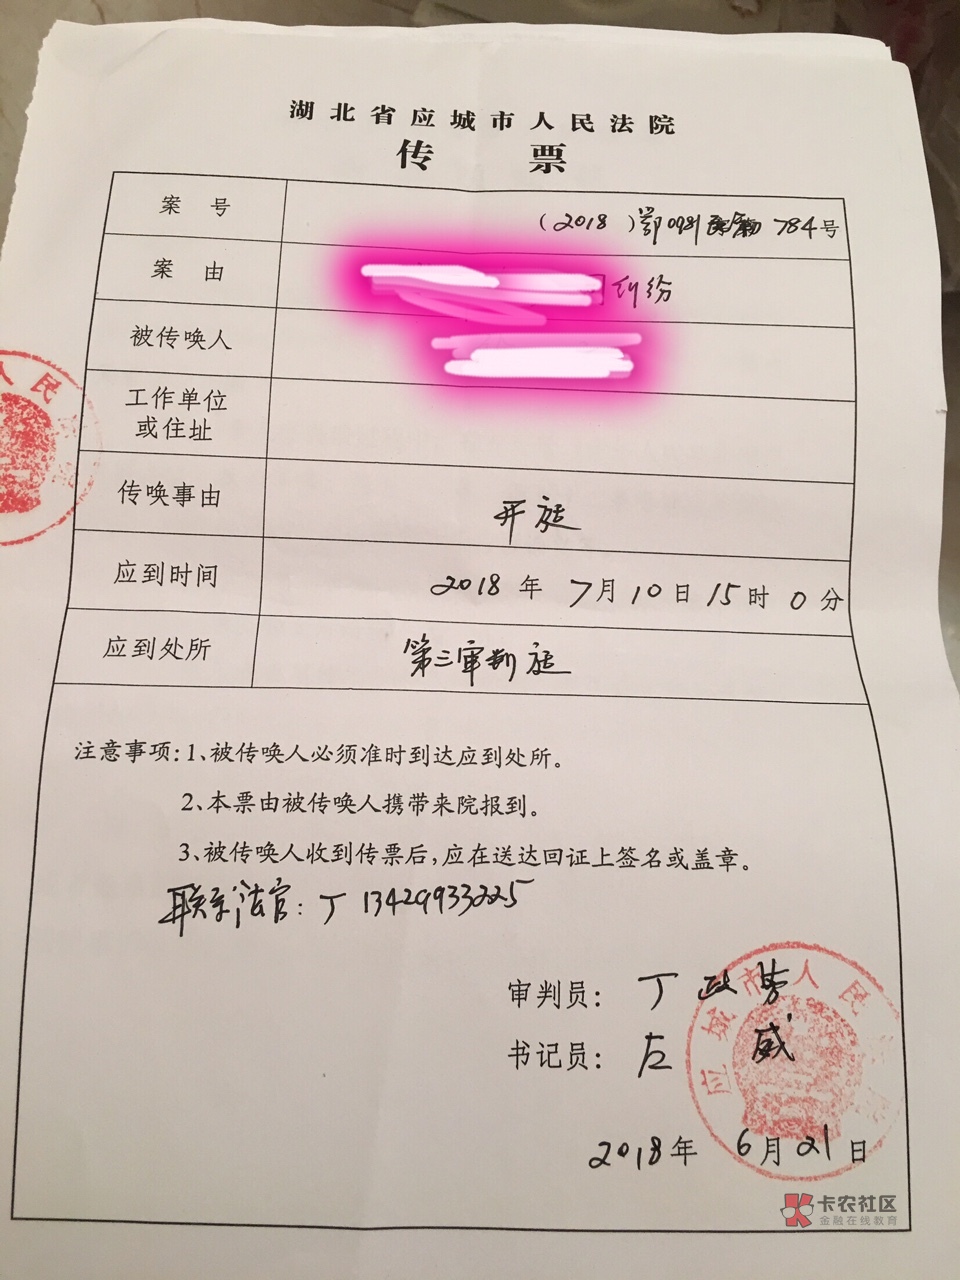 湖北省应城市人民法院
传 票
案 号 (2018)鄂0981 784号
案 由 纠纷
被传唤人
工作单位
或住址
传唤事由 开庭
应到时间 2018年 7月10日15时0分
应到处所 第三审判庭
注意事项:1、被传唤人必须准时到达应到处所。
2、本票由被传唤人携带来院报到。
3、被传唤人收到传票后,应在送达回证上签名或盖章。
联系法官:丁 13429933225
审判员: 丁政
书记员: 左威
2018年 6月21日
人民
应城市人民
卡农社区
金融在线教育